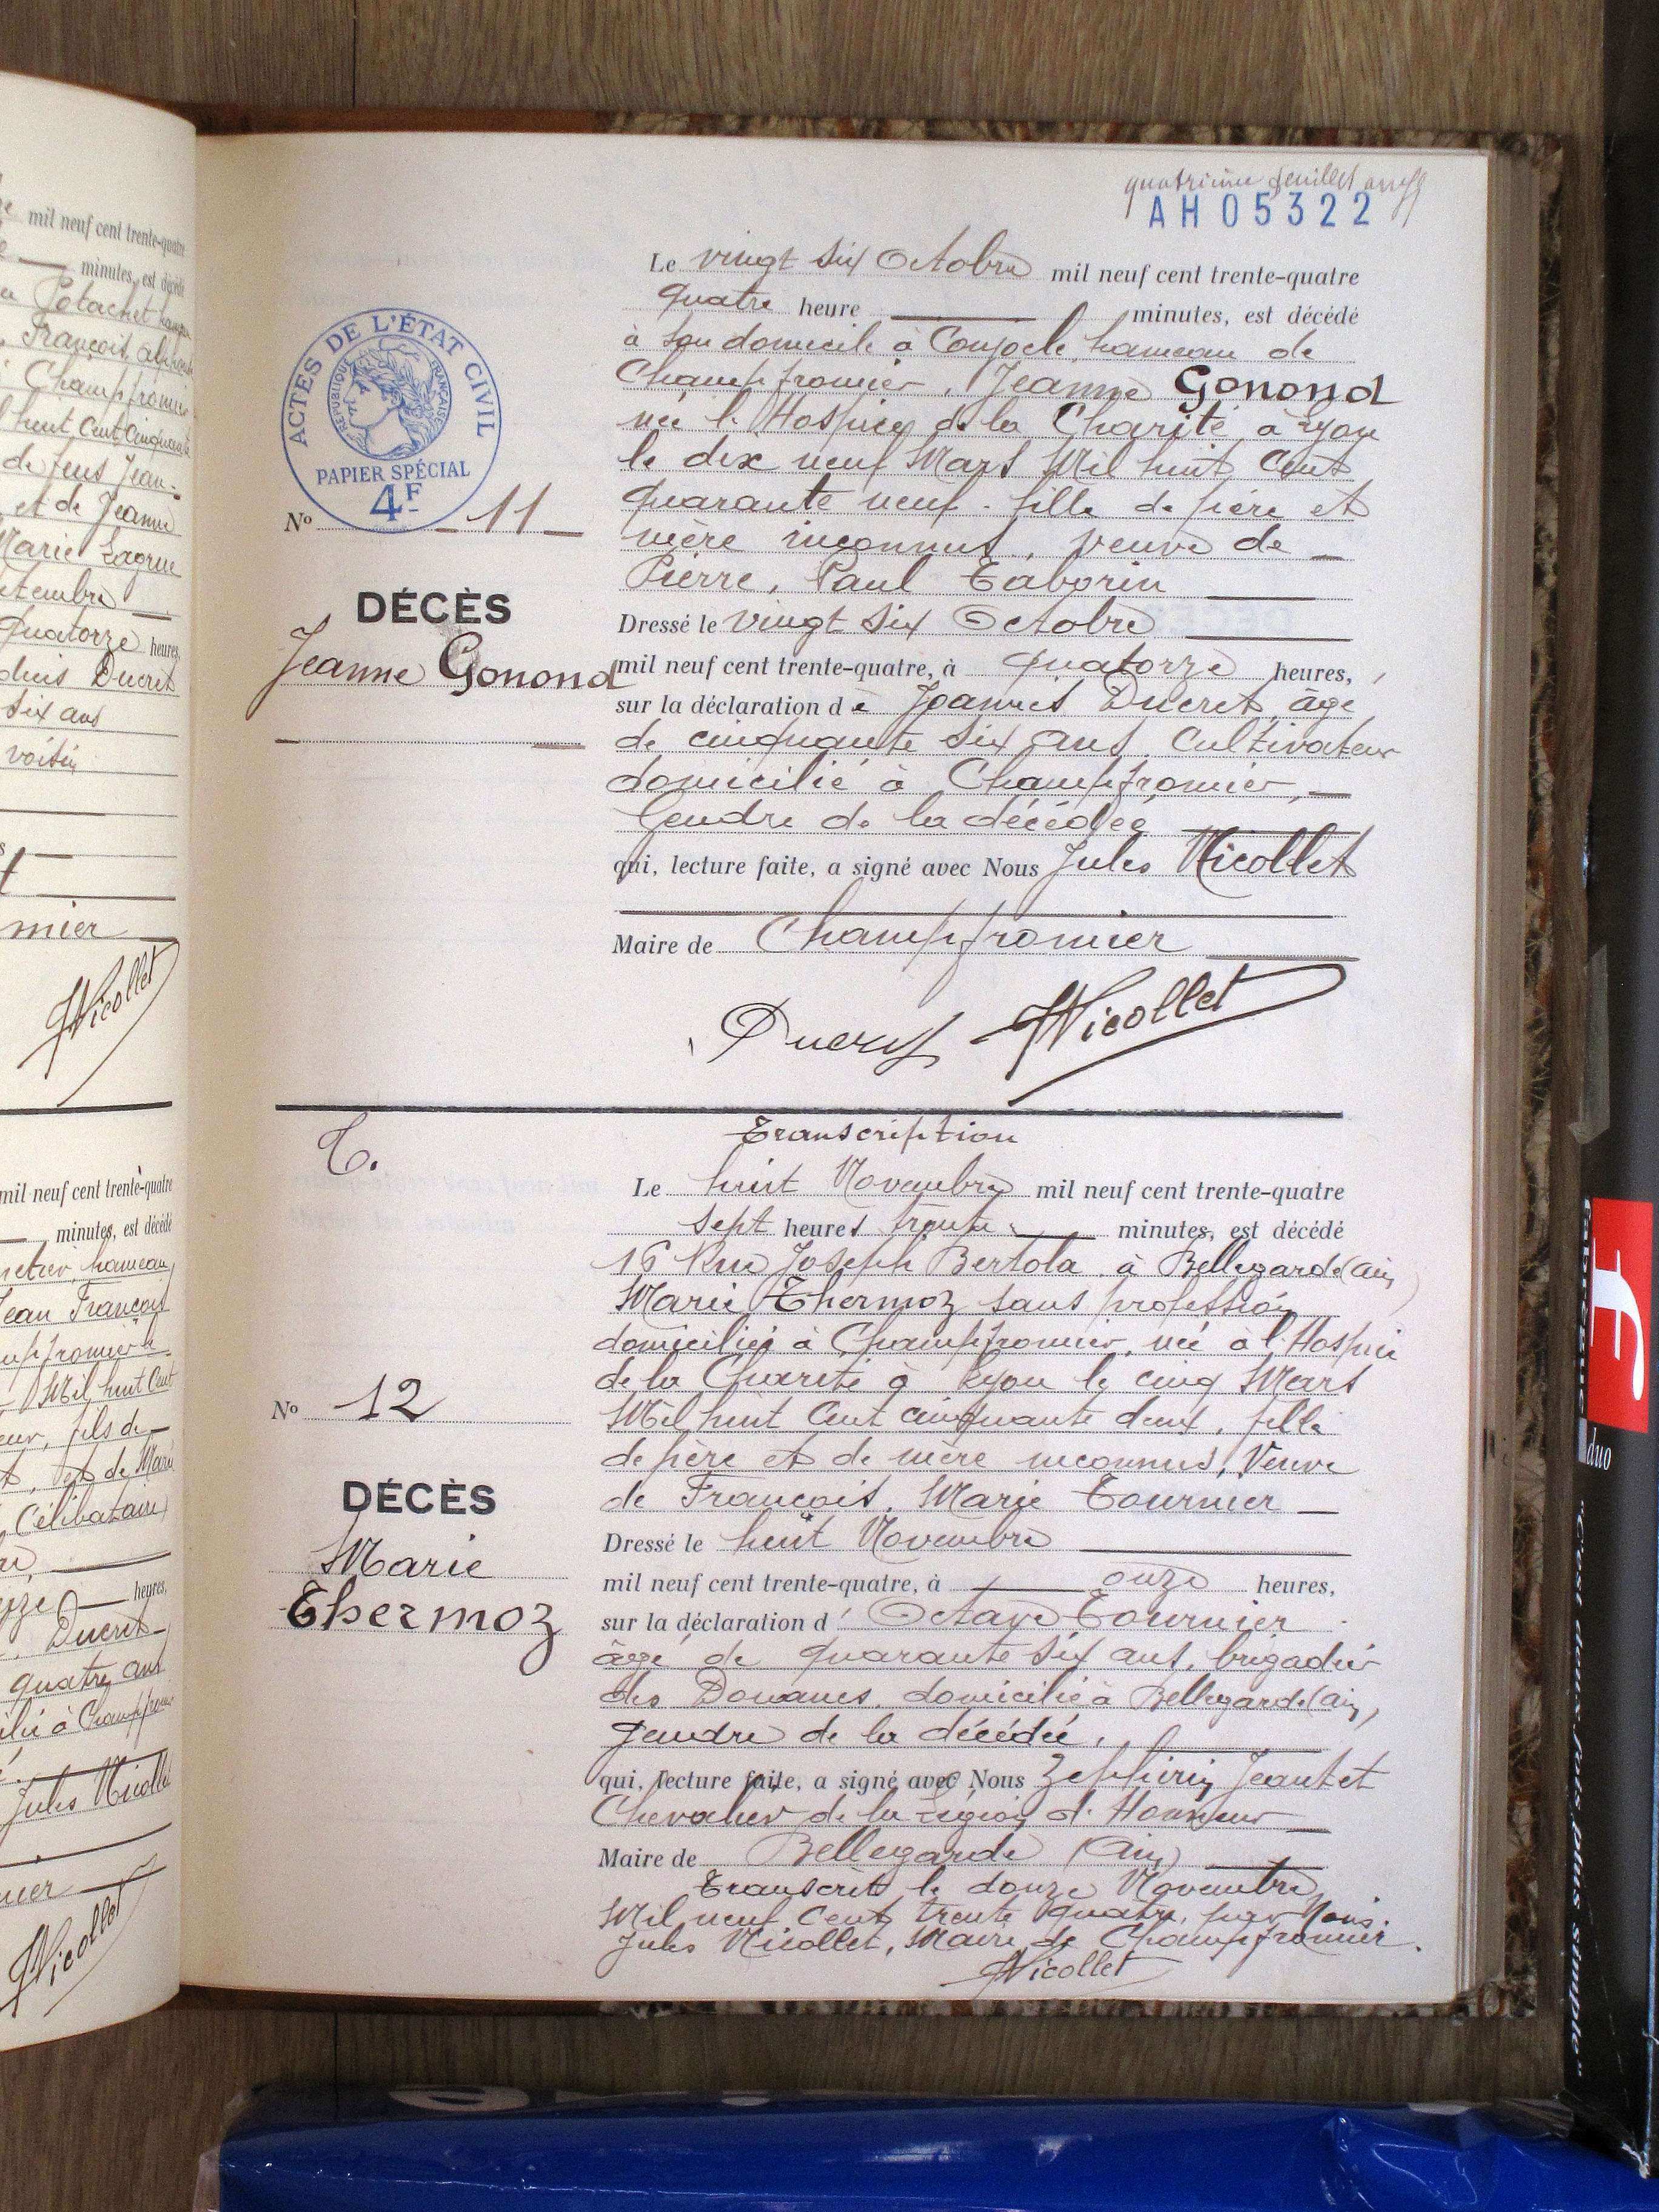 mil neuf cent trente-quatre
minutes, est décédé
Potachet
François
Champfromier
huit Cent Cinquante
de feus Jean-
et de Jeanne
Marie Lagrue
ptembre
Quatorze heures,
Ducret
six ans
voisin
mier
JNicollet
mil neuf cent trente-quatre
minutes, est décédé
hameau
Jean François
Mil huit Cent
eur, fils de
et de Marie
Célibataire
heures,
Ducret
quatre ans
à Champfro
Jules Nicollet
JNicollet
quatrième feuillet
AH05322
Le vingt six Octobre mil neuf cent trente-quatre
quatre heure minutes, est décédé
à son domicile à Conjocle, hameau de
Champfromier, Jeanne Gonond
née l'Hospice de la Charité, à Lyon
le dix neuf Mars Mil huit Cent
quarante neuf. fille de père et
mère inconnus, veuve de
Pierre, Paul Taborin
Dressé le vingt six Octobre
mil neuf cent trente-quatre, à quatorze heures,
sur la déclaration de Joannès Ducret, âgé
de cinquante six ans, Cultivateur
domicilié à Champfromier,
Gendre de la décédée
qui, lecture faite, a signé avec Nous Jules Nicollet
Maire de Champfromier
Ducret JNicollet
ACTES DE L'ÉTAT CIVIL
RÉPUBLIQUE FRANÇAISE
PAPIER SPÉCIAL
4F
No 11
DÉCÈS
Jeanne Gonond
T.
Transcription
Le huit Novembre mil neuf cent trente-quatre
sept heures trente minutes, est décédé
16 Rue Joseph Bertola à Bellegarde (Ain)
Marie Thermoz sans profession
domiciliée à Champfromier, née à l'Hospice
de la Charité à Lyon le cinq Mars
Mil huit Cent cinquante deux, fille
de père et de mère inconnus, Veuve
de François, Marie Tournier
Dressé le huit Novembre
mil neuf cent trente-quatre, à onze heures,
sur la déclaration d' Octave Tournier
âgé de quarante six ans, brigadier
des Douanes, domicilié à Bellegarde (Ain),
gendre de la décédée,
qui, lecture faite, a signé avec Nous Zéphirin Jeantet
Chevalier de la Légion d'Honneur
Maire de Bellegarde (Ain)
Transcrit le douze Novembre
Mil neuf Cent trente quatre, par Nous.
Jules Nicollet, Maire de Champfromier.
JNicollet
No 12
DÉCÈS
Marie
Thermoz
duo